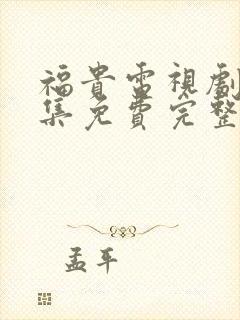 福貴電視劇
集免費完整
孟平